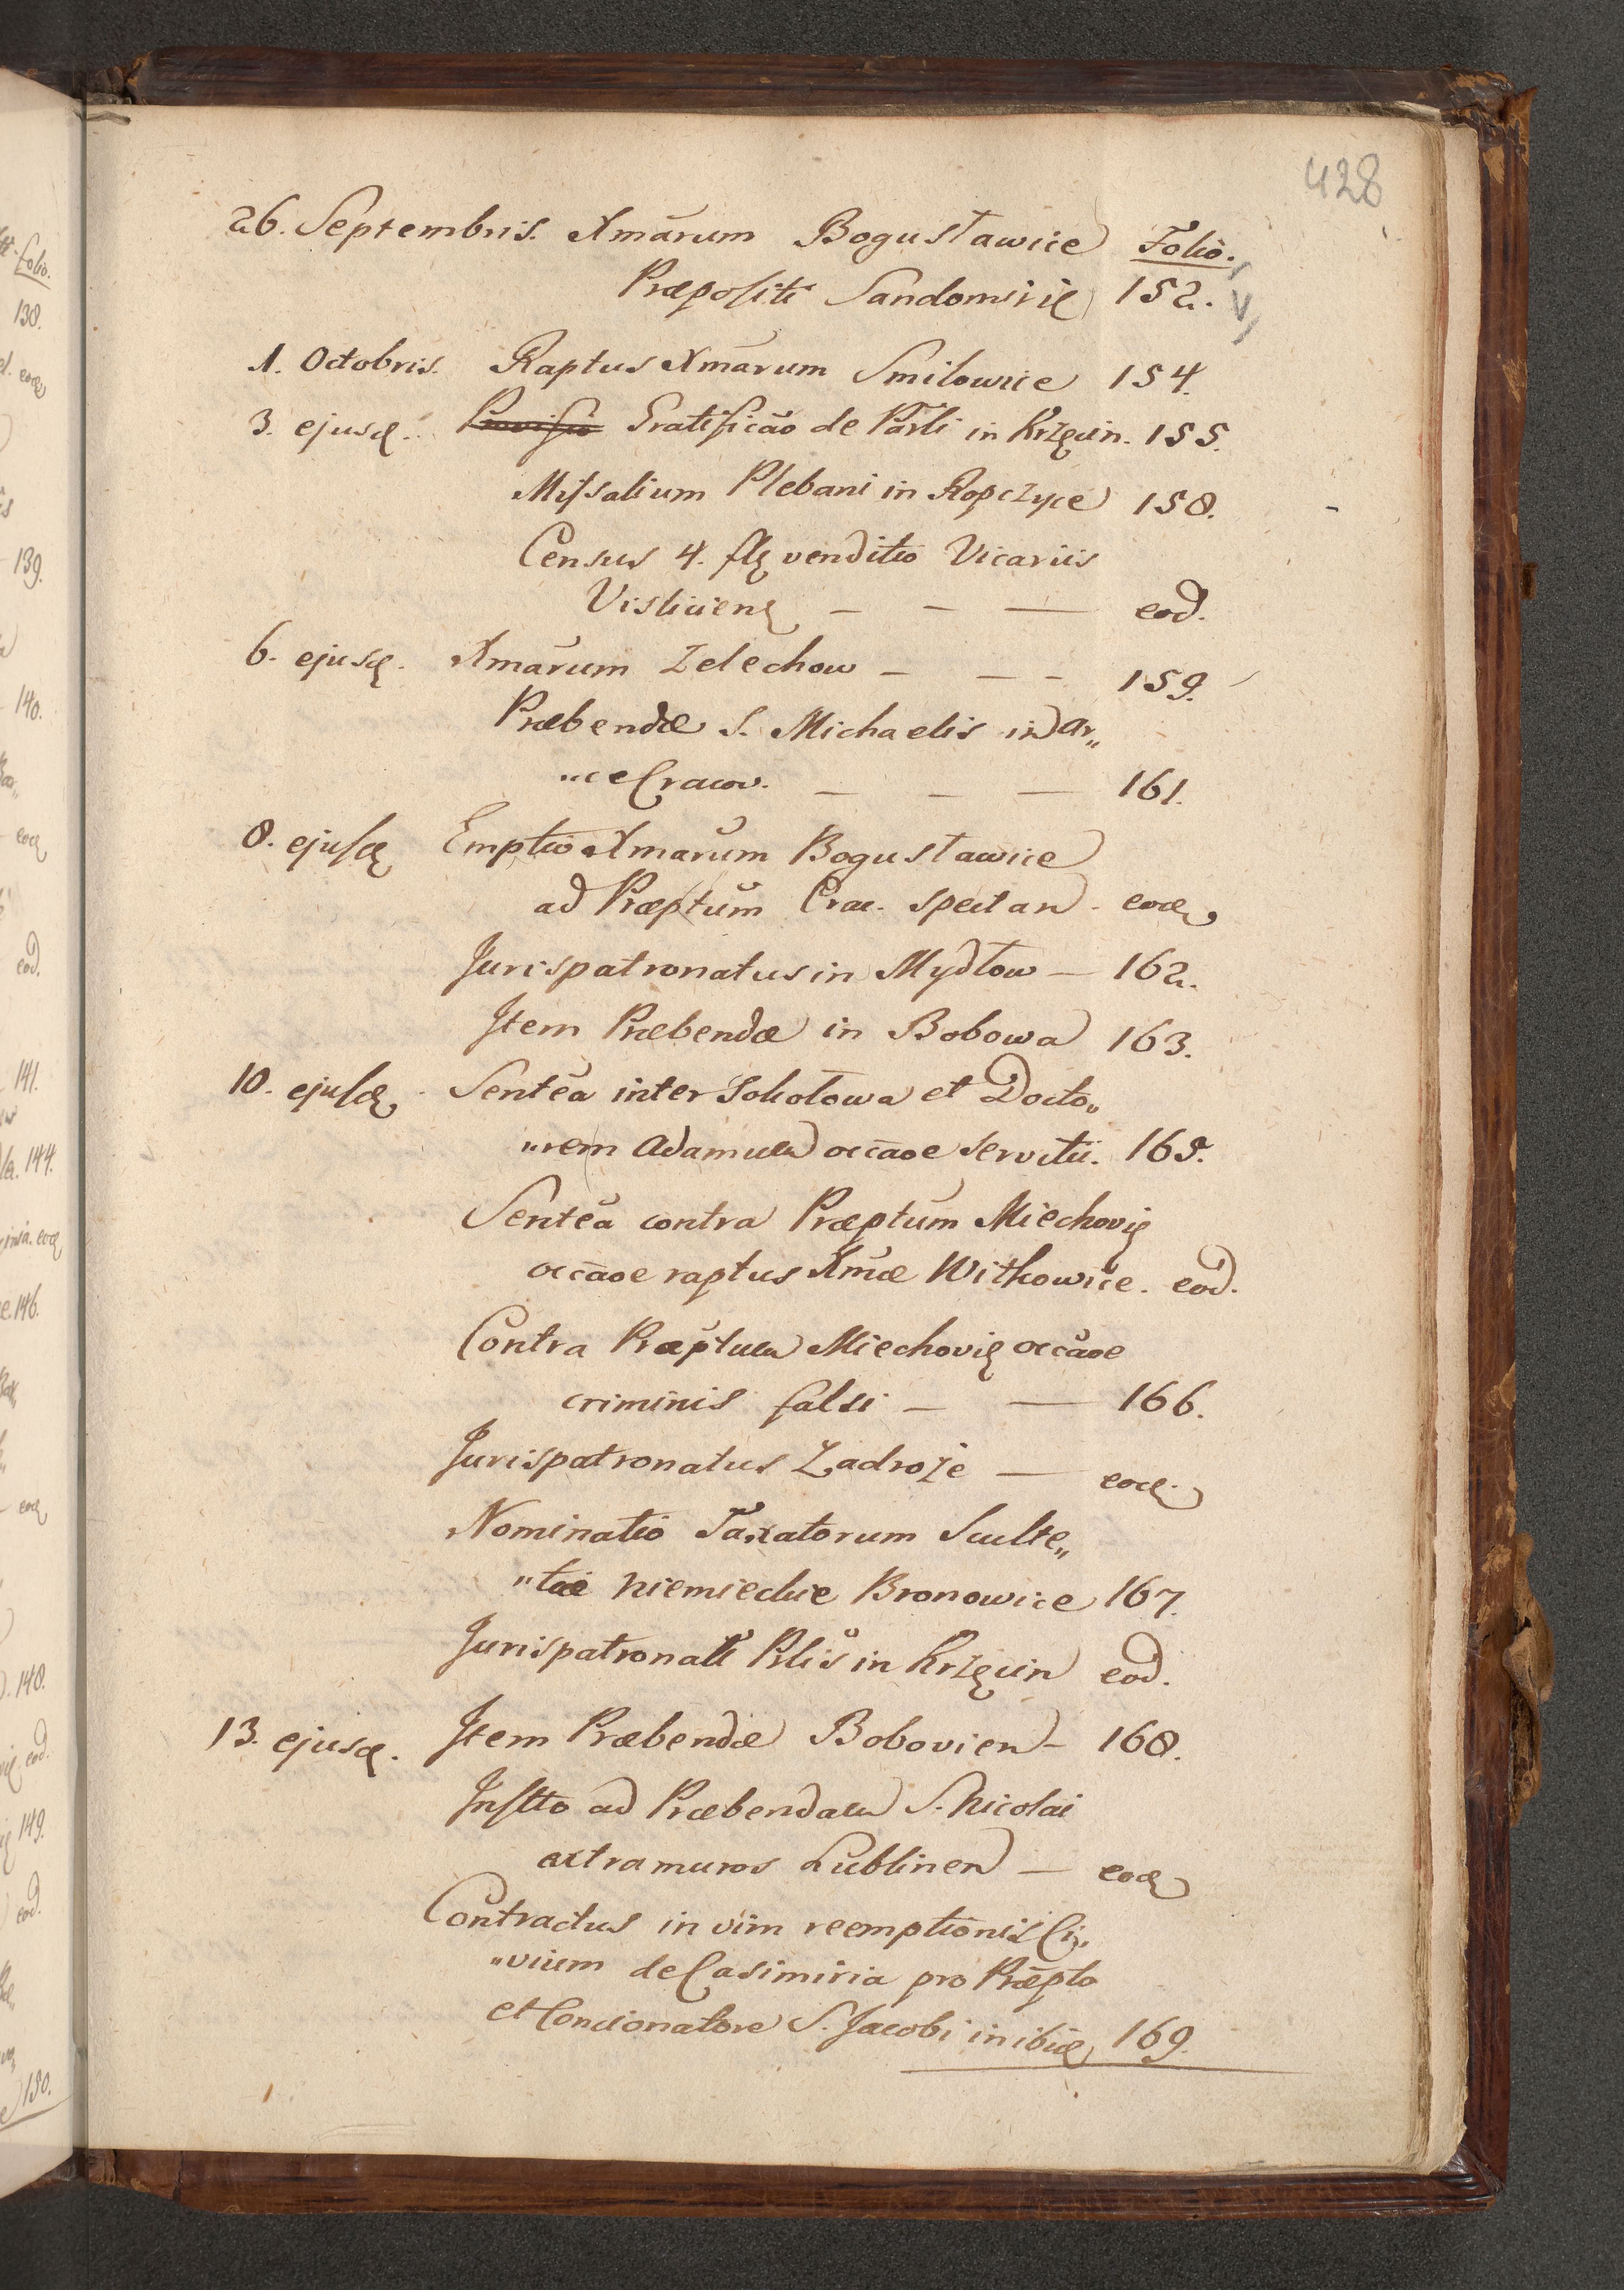 428
26. Septembris. Xmārum Bogusławice Folio.
Præpositi Sandomirię 152.
1. Octobris. Raptus Xmārum Smilowice 154.
3. ejusd. Provisio Gratificāo de Parli in Krzęcin. 155.
Missalium Plebani in Ropczyce 158.
Census 4. flę venditio Vicariis
Visliciens — — — eod.
6. ejusd. Xmārum Zelechow — — — 159.
Præbendæ S. Michaelis in Ar„
„ce Cracov. — — — 161.
8. ejusd. Emptio Xmarum Bogusławice
ad Præptum Crac. spectan. eod.
Jurispatronatus in Mydłow — 162.
Item Præbendæ in Bobowa 163.
10. ejusd. Sentēa inter Sokołowa et Docto„
„rem Adamum occāoe servitii. 165.
Sentēa contra Præptum Miechovię
occāoe raptus Xmæ Witkowice. eod.
Contra Præptum Miechovię occāoe
criminis falsi — — 166.
Jurispatronatus Zadroże — eod.
Nominatio Taxatorum Sculte„
„tiæ Niemieckie Bronowice 167.
Jurispatronatus Plis in Krzęcin eod.
13. ejusd. Item Præbendæ Bobovien — 168.
Instto ad Præbendam S. Nicolai
extra muros Lublinen — eod.
Contractus in vim reemptionis Ci„
„vium de Casimiria pro Præpto
et Concionatore S. Jacobi in ibid. 169.